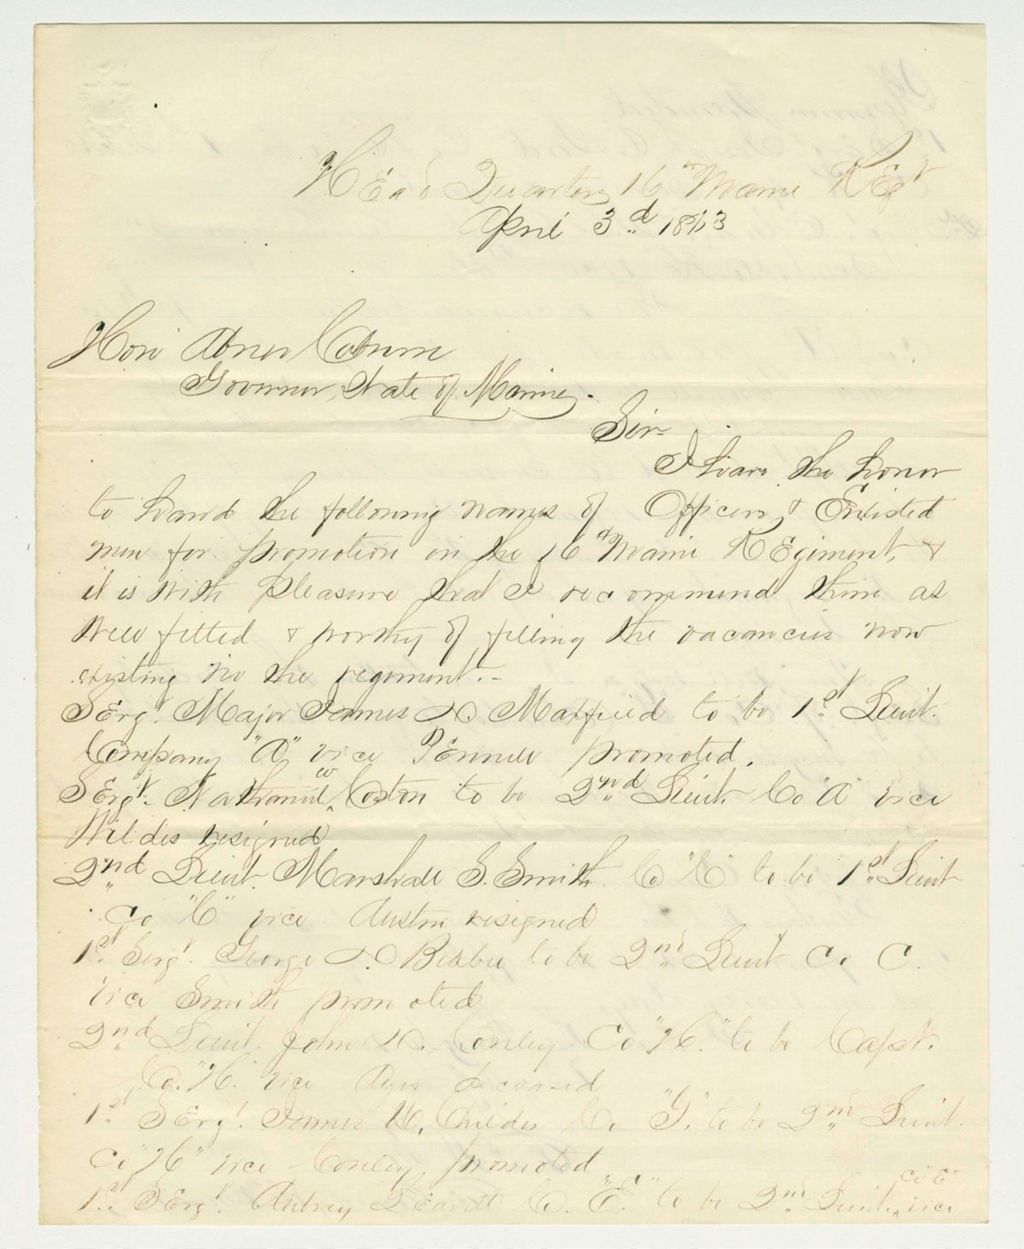 Head Quarters 16th Maine Regt
April 3d 1863
Hon Abner Coburn
Governor State of Maine.
Sir
I have the honor
to hand the following names of Officers & Enlisted
men for promotion in the 16th Maine Regiment, &
it is with pleasure that I recommend them as
well fitted & worthy of filling the vacancies now
existing in the regiment.-
Sergt. Major James H. Maxfield to be 1st Lieut.
Company "A" vice promoted.
Sergt. Nathaniel W Coston to be 2nd Lieut. Co "A" vice
Wildes resigned
2nd Lieut. Marshall S. Smith Co "C" to be 1st Lieut
Co "C" vice Austin resigned
1st Sergt. George H. Bisbee to be 2nd Lieut Co C.
vice Smith promoted
2nd Lieut. John D. Conley Co "H." to be Capt.
Co. "H." vice Ayer deceased
1st Sergt. James U. Childs Co "G". to be 2nd Lieut.
Co "H" vice Conley, promoted
1st Sergt. Aubrey Leavitt Co. "E." to be 2nd Lieut. Co "E" vice